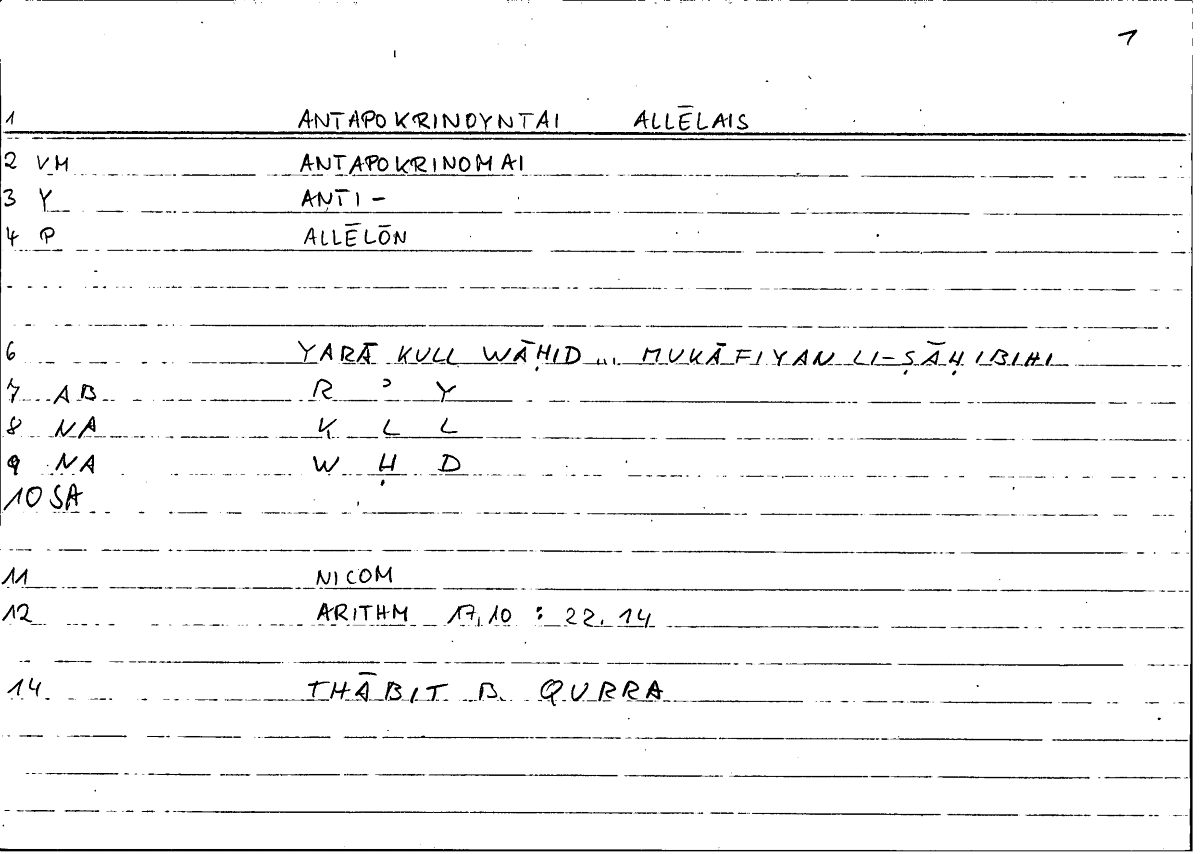 1
1 ANTAPOKRINOYNTAI ALLĒLAIS
2 VM ANTAPOKRINOMAI
3 Y ANTI-
4 P ALLĒLŌN
6 YARĀ KULL WĀḤID ... MUKĀFIYAN LI-ṢĀḤIBIHI
7 AB R ʾ Y
8 NA K L L
9 NA W Ḥ D
10 SA
11 NICOM
12 ARITHM 17,10 : 22.14
14 THĀBIT B. QURRA